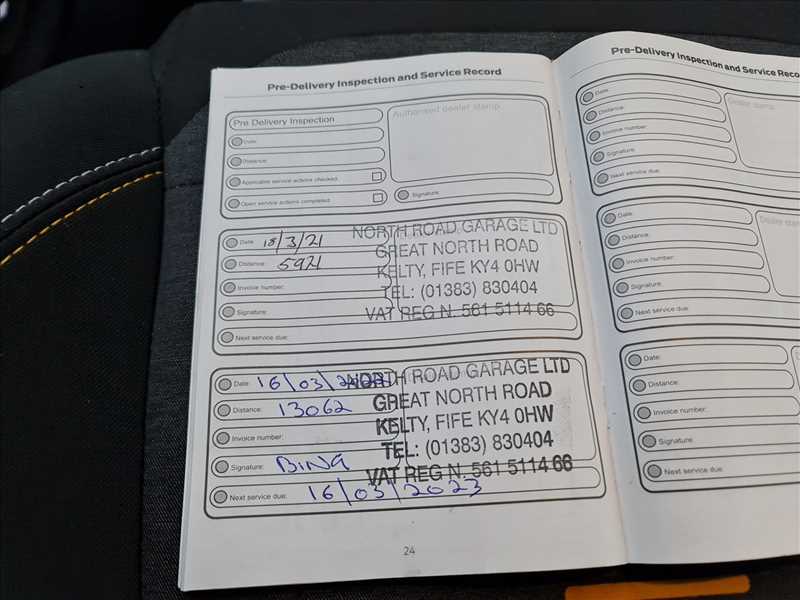 Pre-Delivery Inspection and Service Record
Pre Delivery Inspection
Authorised dealer stamp
Date:
Distance:
Applicable service actions checked:
Open service actions completed:
Signature:
Date: 18/3/21
Distance: 5921
Invoice number:
Signature:
Next service due:
NORTH ROAD GARAGE LTD
GREAT NORTH ROAD
KELTY, FIFE KY4 0HW
TEL: (01383) 830404
VAT REG N. 561 5114 66
Date: 16/03/2022
Distance: 13062
Invoice number:
Signature: BING
Next service due: 16/03/2023
NORTH ROAD GARAGE LTD
GREAT NORTH ROAD
KELTY, FIFE KY4 0HW
TEL: (01383) 830404
VAT REG N. 561 5114 66
24
Pre-Delivery Inspection and Service Reco
Date:
Distance:
Invoice number:
Signature:
Next service due:
Dealer stamp
Date:
Distance:
Invoice number:
Signature:
Next service due:
Dealer stamp
Date:
Distance:
Invoice number:
Signature:
Next service due: